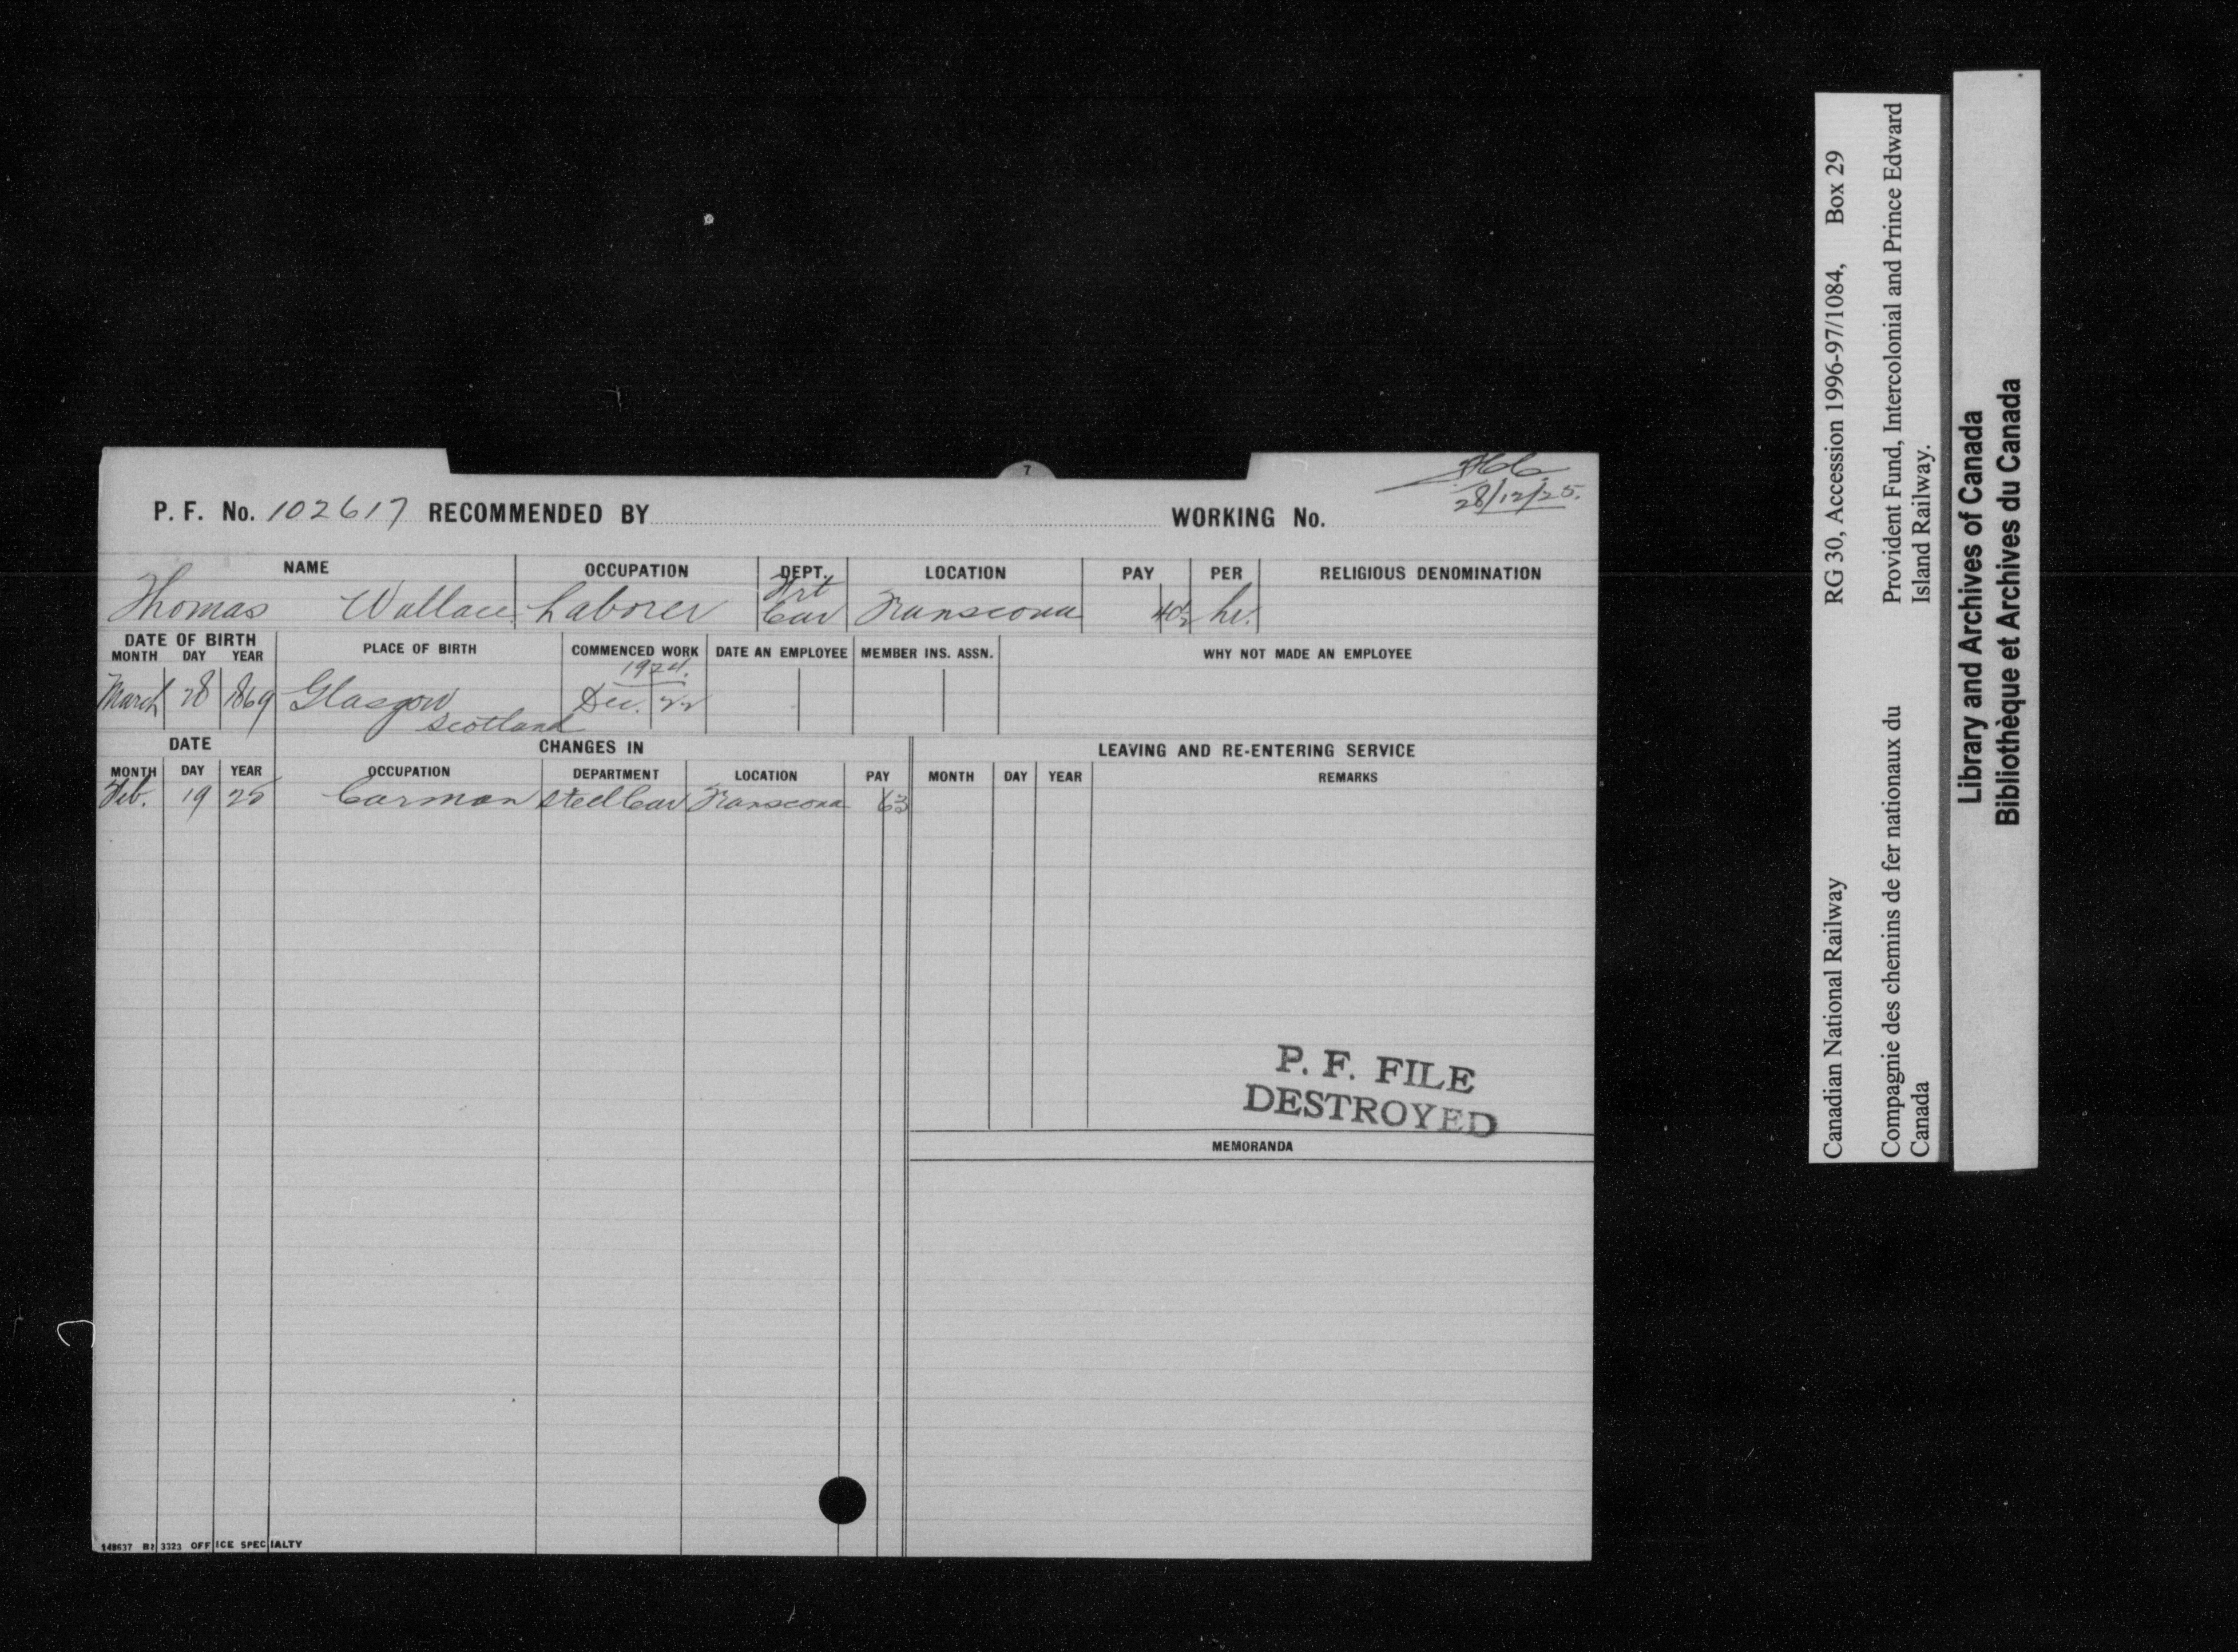 7
28/12/25.
P. F. No. 102617 RECOMMENDED BY WORKING No.
NAME OCCUPATION DEPT. LOCATION PAY PER RELIGIOUS DENOMINATION
Frt
Thomas Wallace Laborer Car Transcona hr.
DATE OF BIRTH PLACE OF BIRTH COMMENCED WORK DATE AN EMPLOYEE MEMBER INS. ASSN. WHY NOT MADE AN EMPLOYEE
MONTH DAY YEAR
1924.
March 28 1869 Glasgow Dec. 22
Scotland
DATE CHANGES IN LEAVING AND RE-ENTERING SERVICE
MONTH DAY YEAR OCCUPATION DEPARTMENT LOCATION PAY MONTH DAY YEAR REMARKS
Feb. 19 25 Carman Steel Car Transcona 63
P. F. FILE
DESTROYED
MEMORANDA
148637 3323 OFFICE SPECIALTY
Canadian National Railway RG 30, Accession 1996-97/1084, Box 29
Compagnie des chemins de fer nationaux du Provident Fund, Intercolonial and Prince Edward
Canada Island Railway.
Library and Archives of Canada
Bibliothèque et Archives du Canada